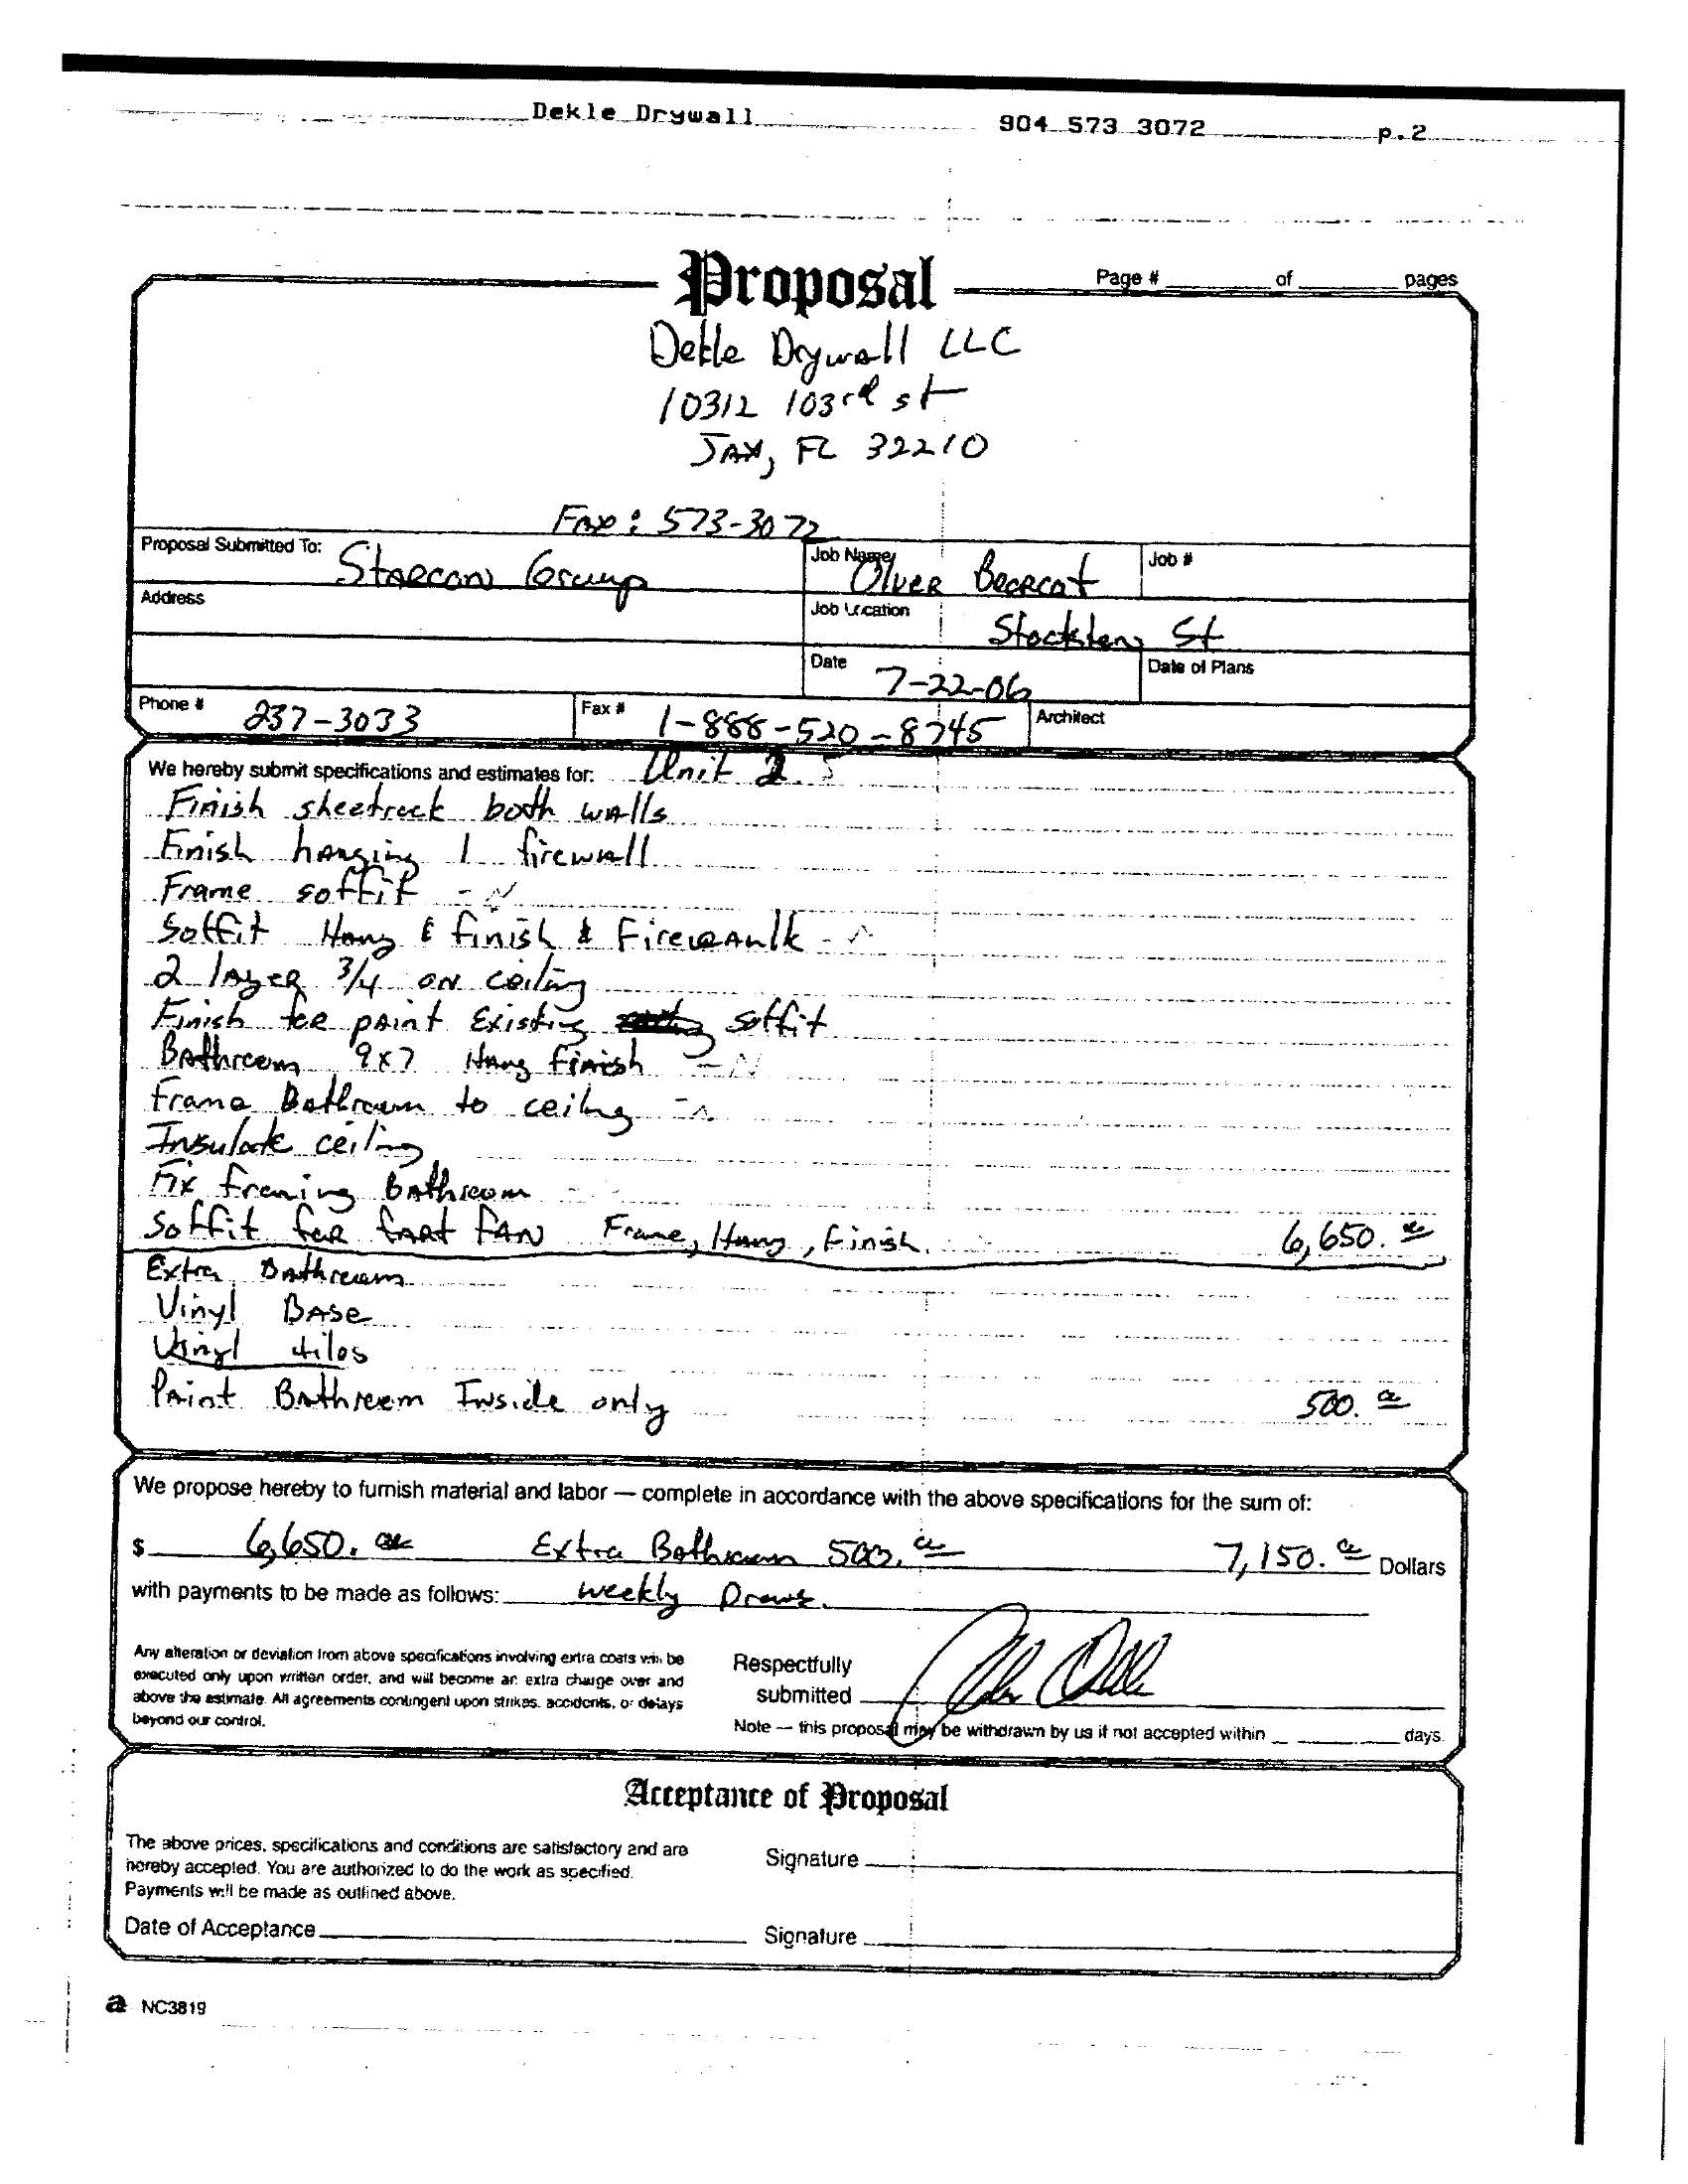 Dekle Drywall 904 573 3072 p.2
Proposal
Page # of pages
Dekle Drywall LLC
10312 103rd st
JAX, FL 32210
Fax: 573-3072
Proposal Submitted To: Starcon Group
Job Name Oliver Bearcat
Job #
Address
Job Location Stockton St
Date 7-22-06
Date of Plans
Phone # 237-3033
Fax # 1-888-520-8745
Architect
We hereby submit specifications and estimates for: Unit 2
Finish sheetrock both walls
Finish hanging 1 firewall
Frame soffit
Soffit Hang & finish & Firecaulk
2 layer 3/4 on ceiling
Finish for paint Existing soffit
Bathroom 9x7 Hang Finish
Frame Bathroom to ceiling
Insulate ceiling
Fix framing Bathroom
Soffit for fart fan Frame, Hang, finish. 6,650.
Extra Bathroom
Vinyl Base
Vinyl tiles
Paint Bathroom Inside only 500.
We propose hereby to furnish material and labor — complete in accordance with the above specifications for the sum of:
$ 6,650. Extra Bathroom 500. 7,150. Dollars
with payments to be made as follows: weekly Draws.
Any alteration or deviation from above specifications involving extra costs will be
executed only upon written order, and will become an extra charge over and
above the estimate. All agreements contingent upon strikes, accidents, or delays
beyond our control.
Respectfully
submitted
Note — this proposal may be withdrawn by us if not accepted within days.
Acceptance of Proposal
The above prices, specifications and conditions are satisfactory and are
hereby accepted. You are authorized to do the work as specified.
Payments will be made as outlined above.
Signature
Date of Acceptance
Signature
a NC3819